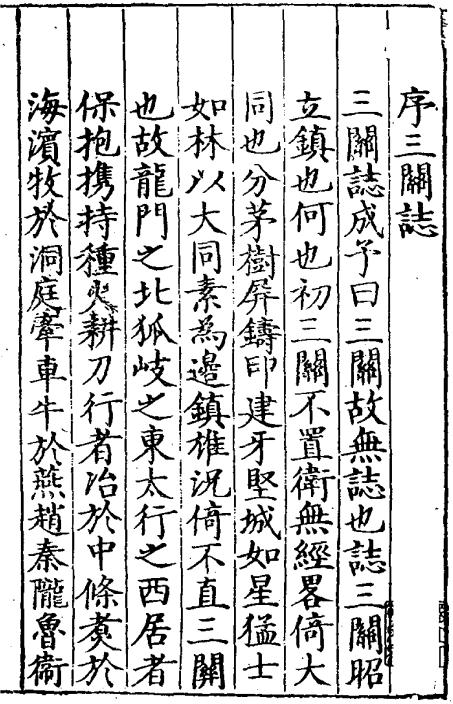 序三關誌
三關誌成予曰三關故無誌也誌三關昭
立鎮也何也初三關不置衛無經畧倚大
同也分茅樹屏鑄印建牙堅城如星猛士
如林以大同素為邊鎮雄況倚不直三關
也故龍門之北狐岐之東太行之西居者
保抱攜持種火耕刀行者冶於中條煑於
海濱牧於洞庭牽車牛於燕趙秦隴魯衛